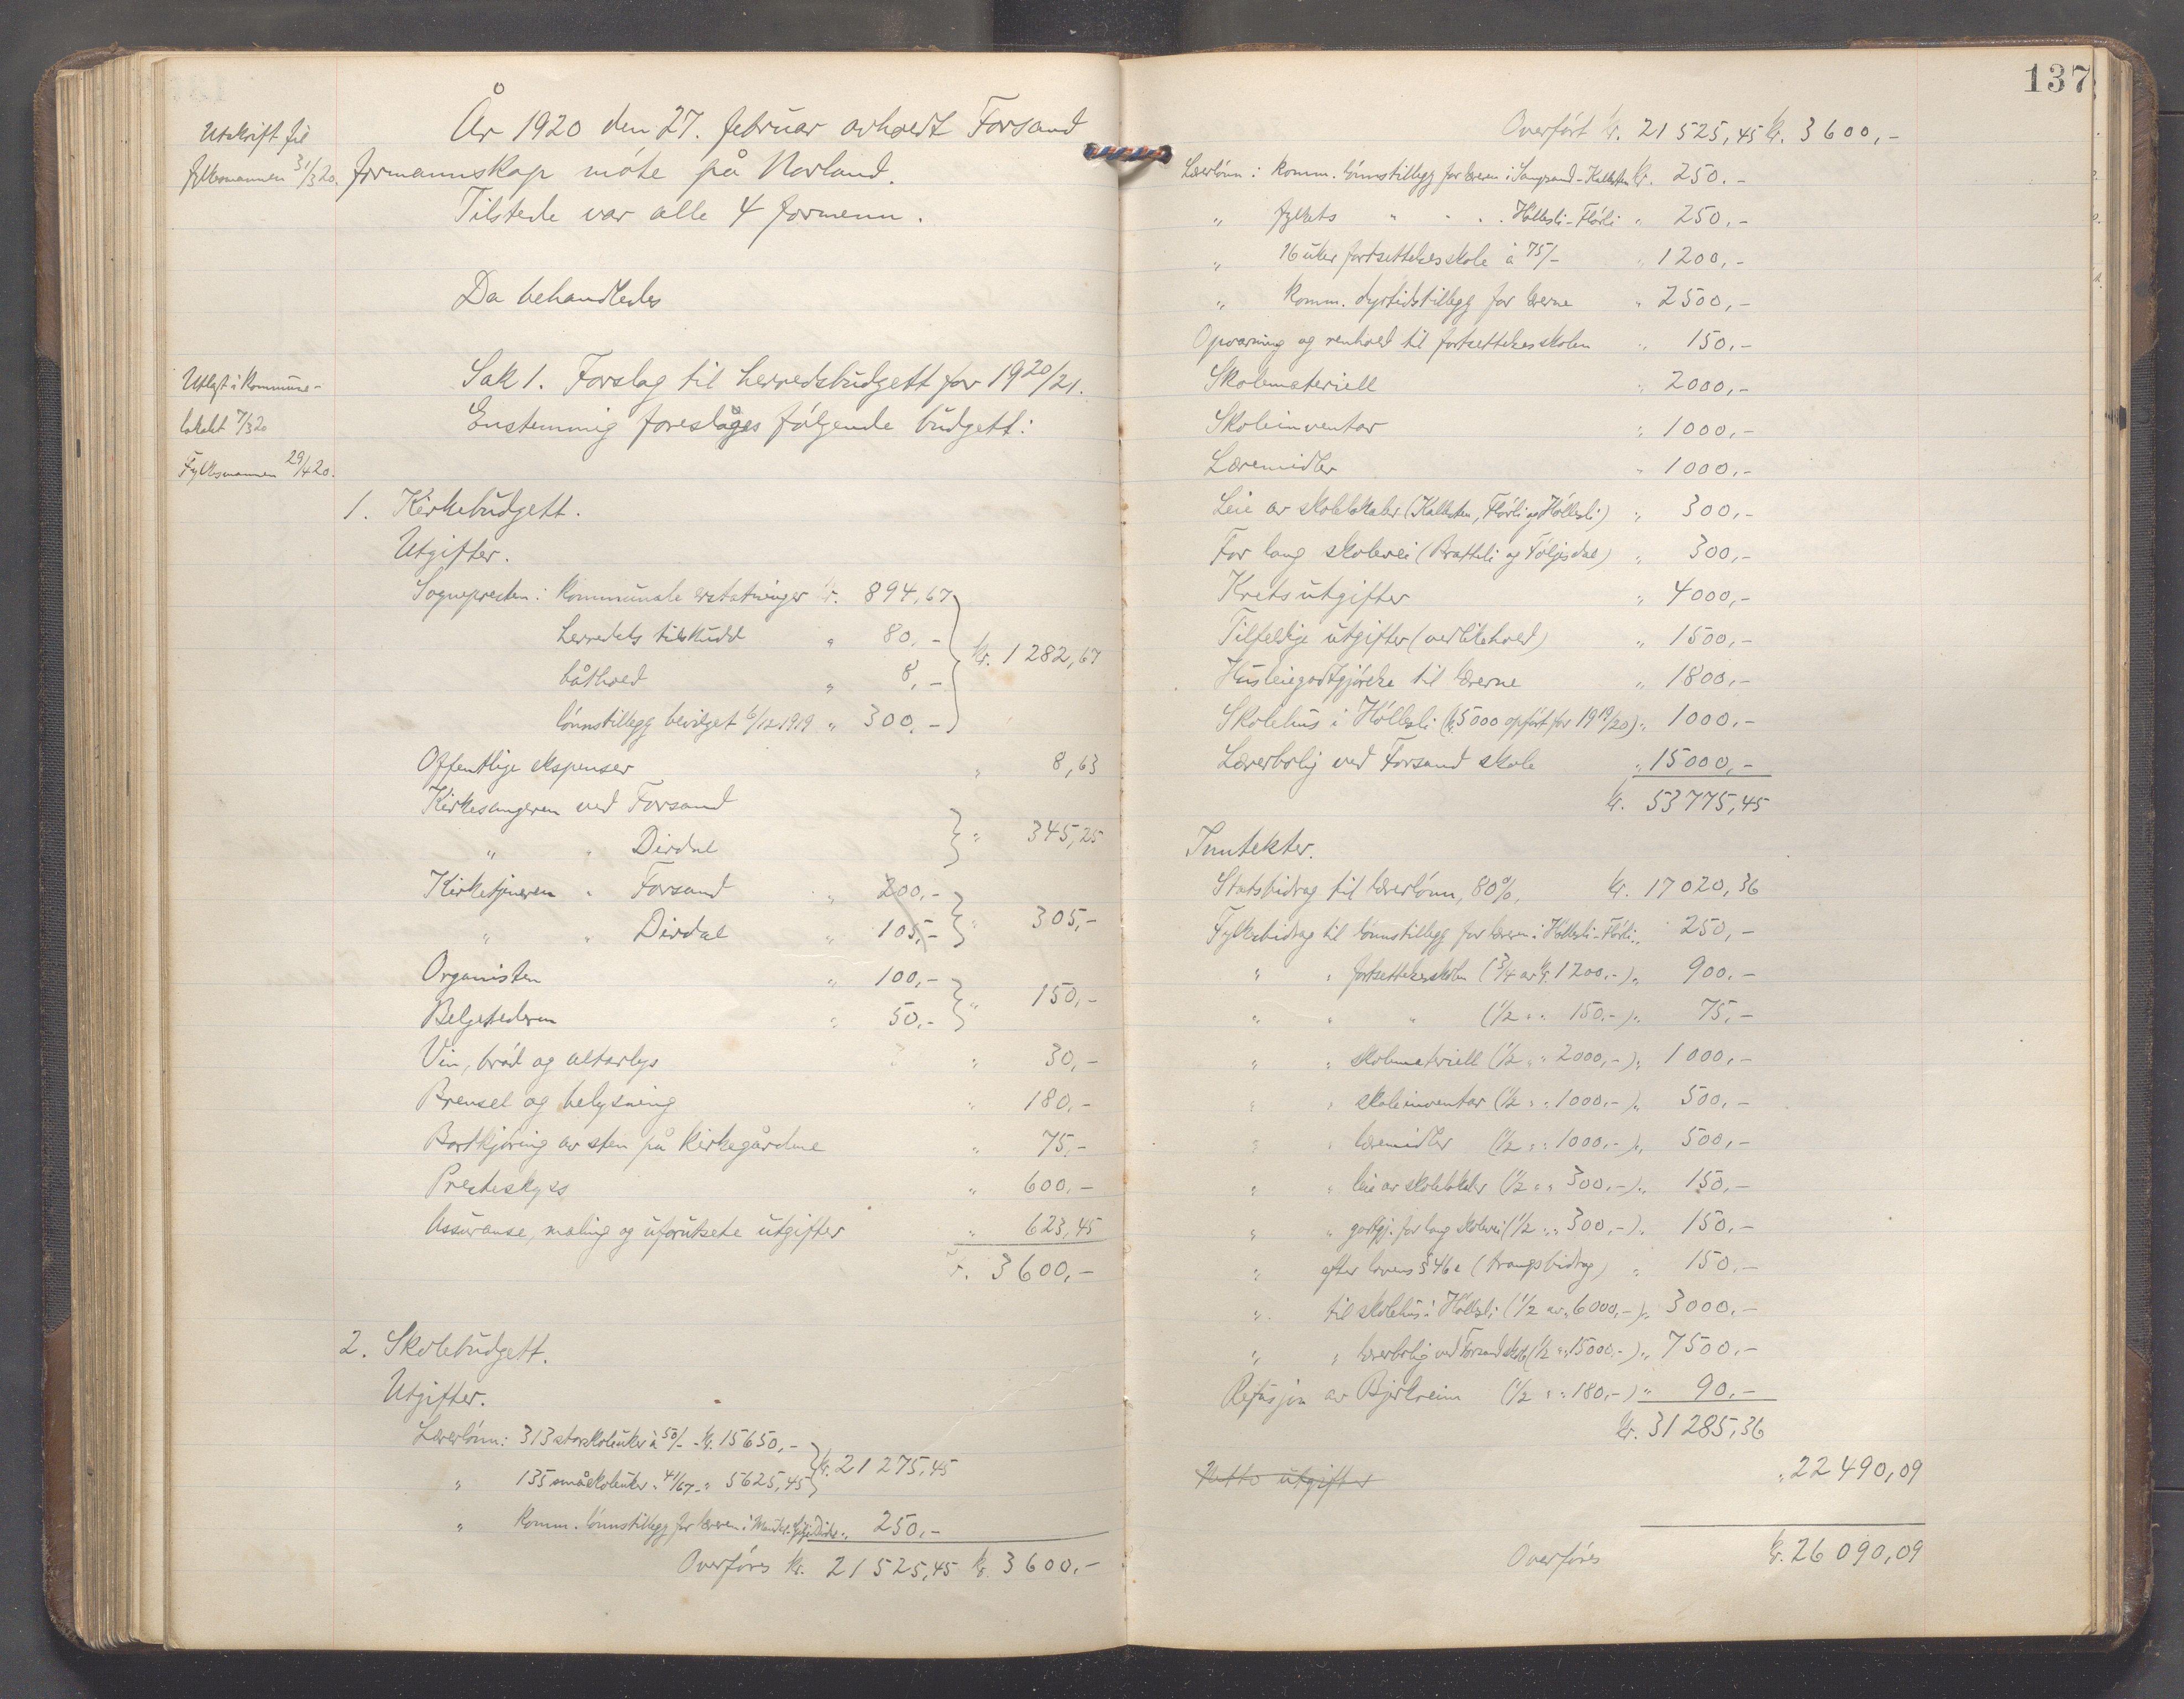 Utskrift til
fylkesmannen 31/3 20.
År 1920 den 27. februar avholdt Forsand
formannskap møte på Norland.
Tilstede var alle 4 formenn.
Da behandledes
Utlagt i kommune-
lokalet 7/3 20
Fylkesmannen 29/4 20.
Sak 1. Forslag til herredsbudgett for 1920/21.
Enstemmig foreslåges følgende budgett:
1. Kirkebudgett.
Utgifter.
Sognepresten: kommunale erstatninger kr. 894,67
herredets tilskudd " 80,-
båthold " 8,- kr. 1282,67
lønnstillegg bevilget 6/12 1919 " 300,-
Offentlige ekspenser " 8,63
Kirkesangeren ved Forsand
" " Dirdal " 345,25
Kirketjeneren " Forsand " 200,-
" " Dirdal " 105,- " 305,-
Organisten " 100,-
Belgetrederen " 50,- " 150,-
Vin, brød og alterlys " 30,-
Brensel og belysning " 180,-
Bortkjøring av sten på kirkegårdene " 75,-
Presteskyss " 600,-
Assuranse, maling og uforutsete utgifter " 623,45
kr. 3600,-
2. Skolebudgett.
Utgifter.
Lærerlønn: 313 storskoleuker à 50/- - kr. 15650,-
" 135 småskoleuker " 41/67 - " 5625,45 kr. 21275,45
" Komm. lønnstillegg for læreren i " 250,-
Overføres kr. 21525,45 kr. 3600,-
137
Overført kr. 21525,45 kr. 3600,-
Lærerlønn: komm. lønnstillegg for læreren i Songesand-Kallesten kr. 250.-
" fylkets " " " Høllesli-Flørli " 250,-
" 16 uker fortsettelsesskole à 75/- " 1200,-
" komm. dyrtidstillegg for lærerne " 2500,-
Opvarming og renhold til fortsettelsesskolen " 150,-
Skolemateriell " 2000,-
Skoleinventar " 1000,-
Læremidler " 1000,-
Leie av skolelokaler (Kallesten, Flørli og Høllesli) " 300,-
For lang skolevei (Bratteli og Føljesdal) " 300,-
Kretsutgifter " 4000,-
Tilfeldige utgifter (vedlikehold) " 1500,-
Husleiegodtgjørelse til lærerne " 1800,-
Skolehus i Høllesli (kr. 5000 opført for 1919/20) " 1000,-
Lærerbolig ved Forsand skole " 15000,-
kr. 53775,45
Inntekter.
Statsbidrag til lærerlønn, 80%, kr. 17020,36
Fylkesbidrag til lønnstillegg for læreren i Høllesli-Flørli " 250,-
" " fortsettelsesskolen (3/4 av kr. 1200,-) " 900,-
" " " (1/2 " " 150,-) " 75,-
" " skolemateriell (1/2 " " 2000,-) " 1000,-
" " skoleinventar (1/2 " " 1000,-) " 500,-
" " læremidler (1/2 " " 1000,-) " 500,-
" " leie av skolelokaler (1/2 " " 300,-) " 150,-
" " godtgj. for lang skolevei (1/2 " " 300,-) " 150,-
" efter lovens § 46 e (trangsbidrag) " 150,-
" til skolehus i Høllesli (1/2 av " 6000,-) " 3000,-
" " lærerbolig ved Forsand skole (1/2 " " 15000,-) " 7500,-
Refusjon av Bjerkreim (1/2 " " 180,-) " 90,-
kr. 31285,36
Netto utgifter " 22490,09
Overføres kr. 26090,09